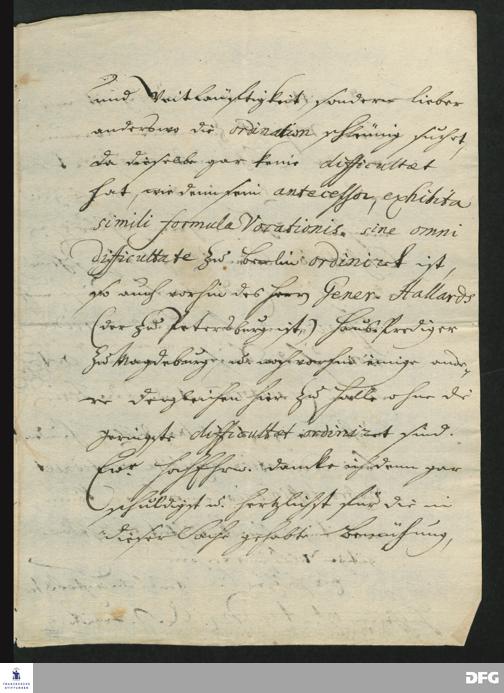 und Weitläufftigkeit, sondern lieber
anderswo die ordination schleunig suchet,
da dieselbe gar keine difficultæt
hat, wie denn sein antecessor, exhibita
simili formula Vocationis. sine omni
difficultate zu Berlin ordiniret ist,
so auch vorhin des Herrn Gener. Hallards
(der zu Petersburg ist,) Hauß-Prediger
zu Magdeburg, u. noch vorhin einige ande-
re dergleichen hier zu Halle ohne die
geringste difficultæt ordiniret sind.
Ew. HochEhrw. dancke ich denn gar
schuldigst u. hertzlichst für die in
dieser Sache gehabte Bemühung,
FRANCKESCHE
STIFTUNGEN
DFG